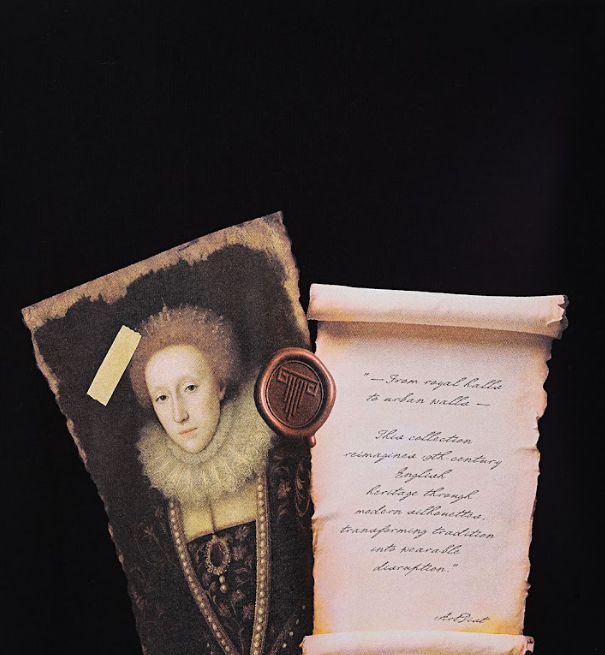 "—From royal halls
to urban walls —
This collection
reimagines 19th-century
English
heritage through
modern silhouettes,
transforming tradition
into wearable
disruption."